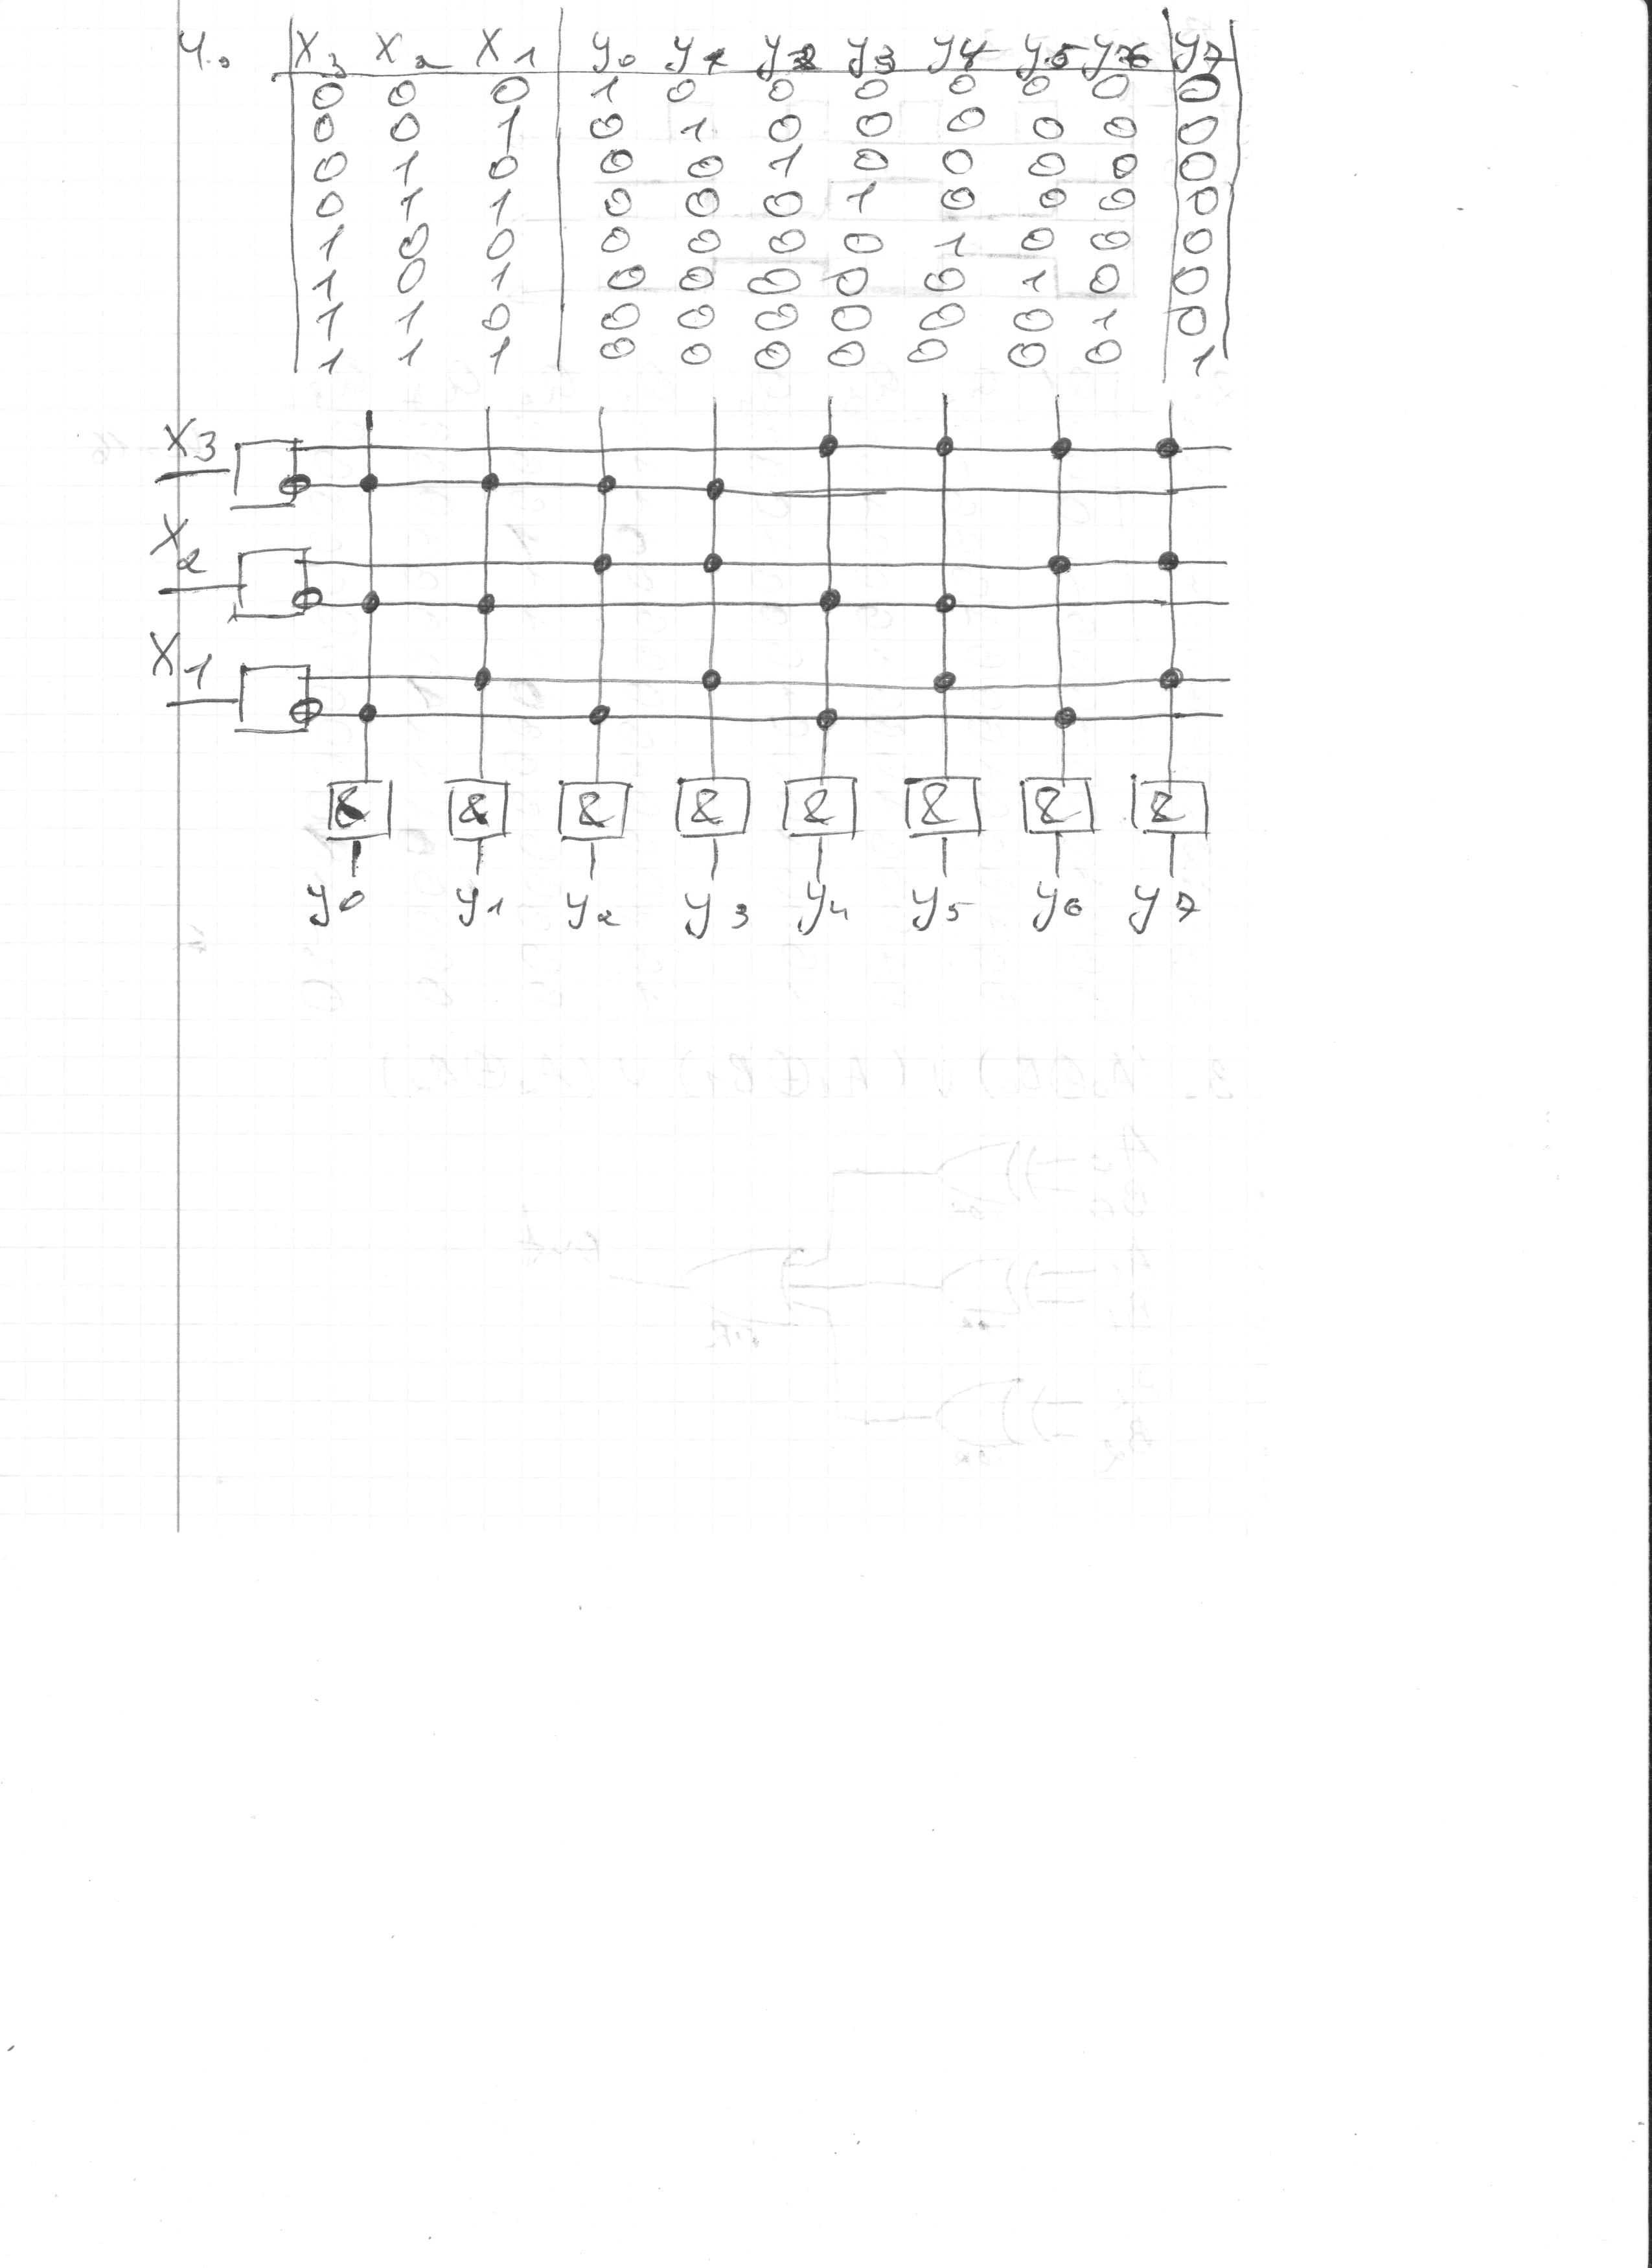 4. X3 X2 X1 y0 y1 y2 y3 y4 y5 y6 y7
0 0 0 1 0 0 0 0 0 0 0
0 0 1 0 1 0 0 0 0 0 0
0 1 0 0 0 1 0 0 0 0 0
0 1 1 0 0 0 1 0 0 0 0
1 0 0 0 0 0 0 1 0 0 0
1 0 1 0 0 0 0 0 1 0 0
1 1 0 0 0 0 0 0 0 1 0
1 1 1 0 0 0 0 0 0 0 1
X3
X2
X1
& & & & & & & &
y0 y1 y2 y3 y4 y5 y6 y7